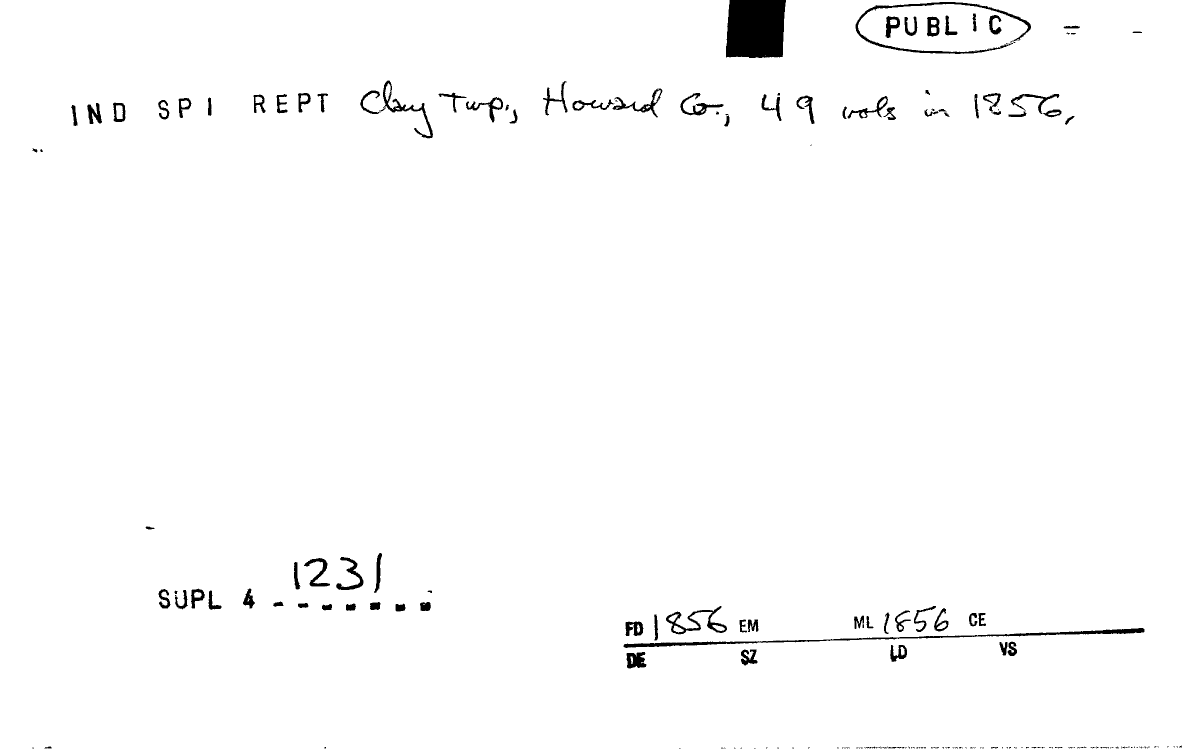 PUBLIC
IND SPI REPT Clay Twp., Howard Co., 49 vols in 1856.
1231
SUPL 4
FD 1856 EM ML 1856 CE
DE SZ LD VS